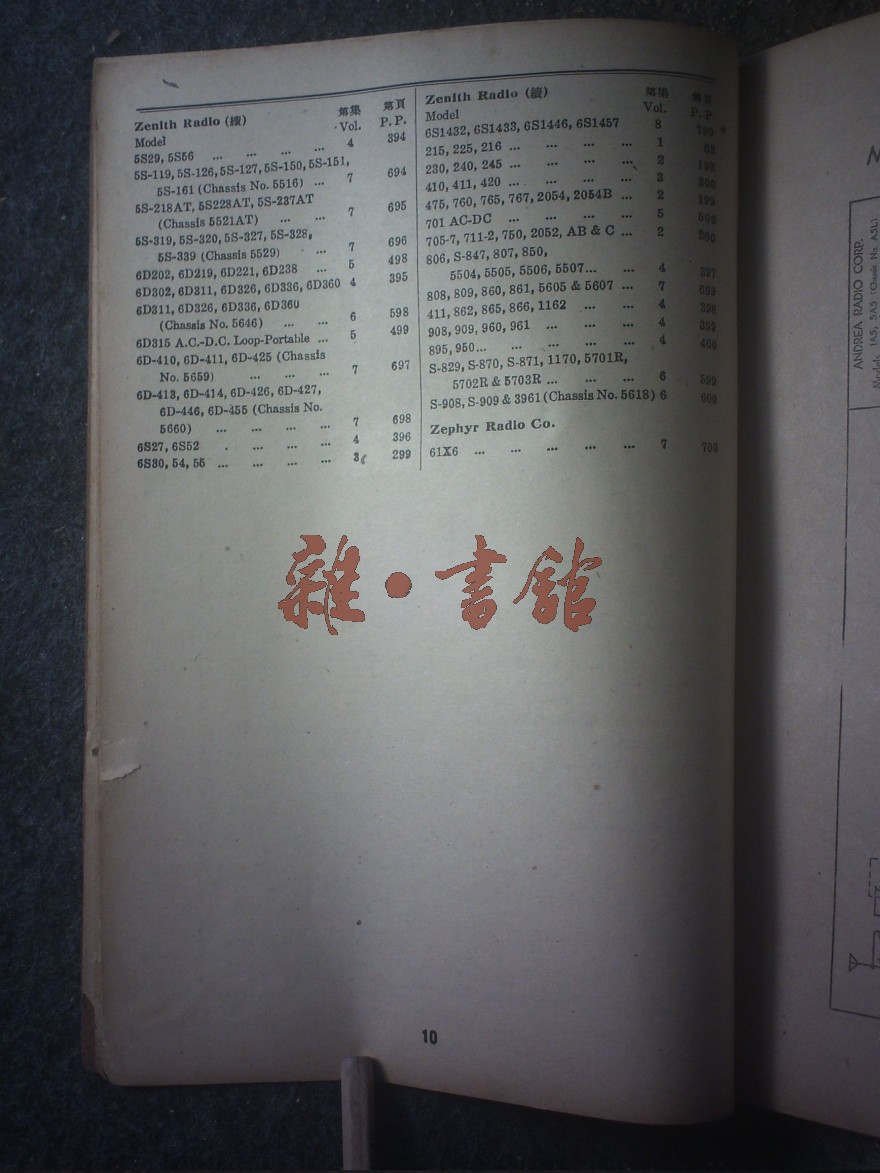 Zenith Radio (續)
第集 第頁
Model Vol. P. P.
5S29, 5S56 ... ... ... ... 4 394
5S-119, 5S-126, 5S-127, 5S-150, 5S-151,
5S-161 (Chassis No. 5516) ... 7 694
5S-218AT, 5S228AT, 5S-237AT
(Chassis 5521AT) ... ... 7 695
5S-319, 5S-320, 5S-327, 5S-328,
5S-339 (Chassis 5529) ... 7 696
6D202, 6D219, 6D221, 6D238 ... 5 498
6D302, 6D311, 6D326, 6D336, 6D360 4 395
6D311, 6D326, 6D336, 6D360
(Chassis No. 5646) ... ... 6 598
6D315 A.C.-D.C. Loop-Portable ... 5 499
6D-410, 6D-411, 6D-425 (Chassis
No. 5659) ... ... ... 7 697
6D-413, 6D-414, 6D-426, 6D-427,
6D-446, 6D-455 (Chassis No.
5660) ... ... ... ... 7 698
6S27, 6S52 . ... ... ... 4 396
6S30, 54, 55 ... ... ... ... 3 299
Zenith Radio (續)
第集 第頁
Model Vol. P. P.
6S1432, 6S1433, 6S1446, 6S1457 8 790
215, 225, 216 ... ... ... ... 1
230, 240, 245 ... ... ... ... 2 198
410, 411, 420 ... ... ... ... 3 300
475, 760, 765, 767, 2054, 2054B ... 2 199
701 AC-DC ... ... ... ... 5 500
705-7, 711-2, 750, 2052, AB & C ... 2 200
806, S-847, 807, 850,
5504, 5505, 5506, 5507... ... 4 397
808, 809, 860, 861, 5605 & 5607 ... 7 699
411, 862, 865, 866, 1162 ... ... 4 398
908, 909, 960, 961 ... ... ... 4 399
895, 950... ... ... ... ... 4 400
S-829, S-870, S-871, 1170, 5701R,
5702R & 5703R ... ... ... 6 599
S-908, S-909 & 3961 (Chassis No. 5618) 6 600
Zephyr Radio Co.
61X6 ... ... ... ... ... 7 700
雜·書館
10
ANDREA RADIO CORP.
Models 1A5, 5A5 (Chassis No. A5L)